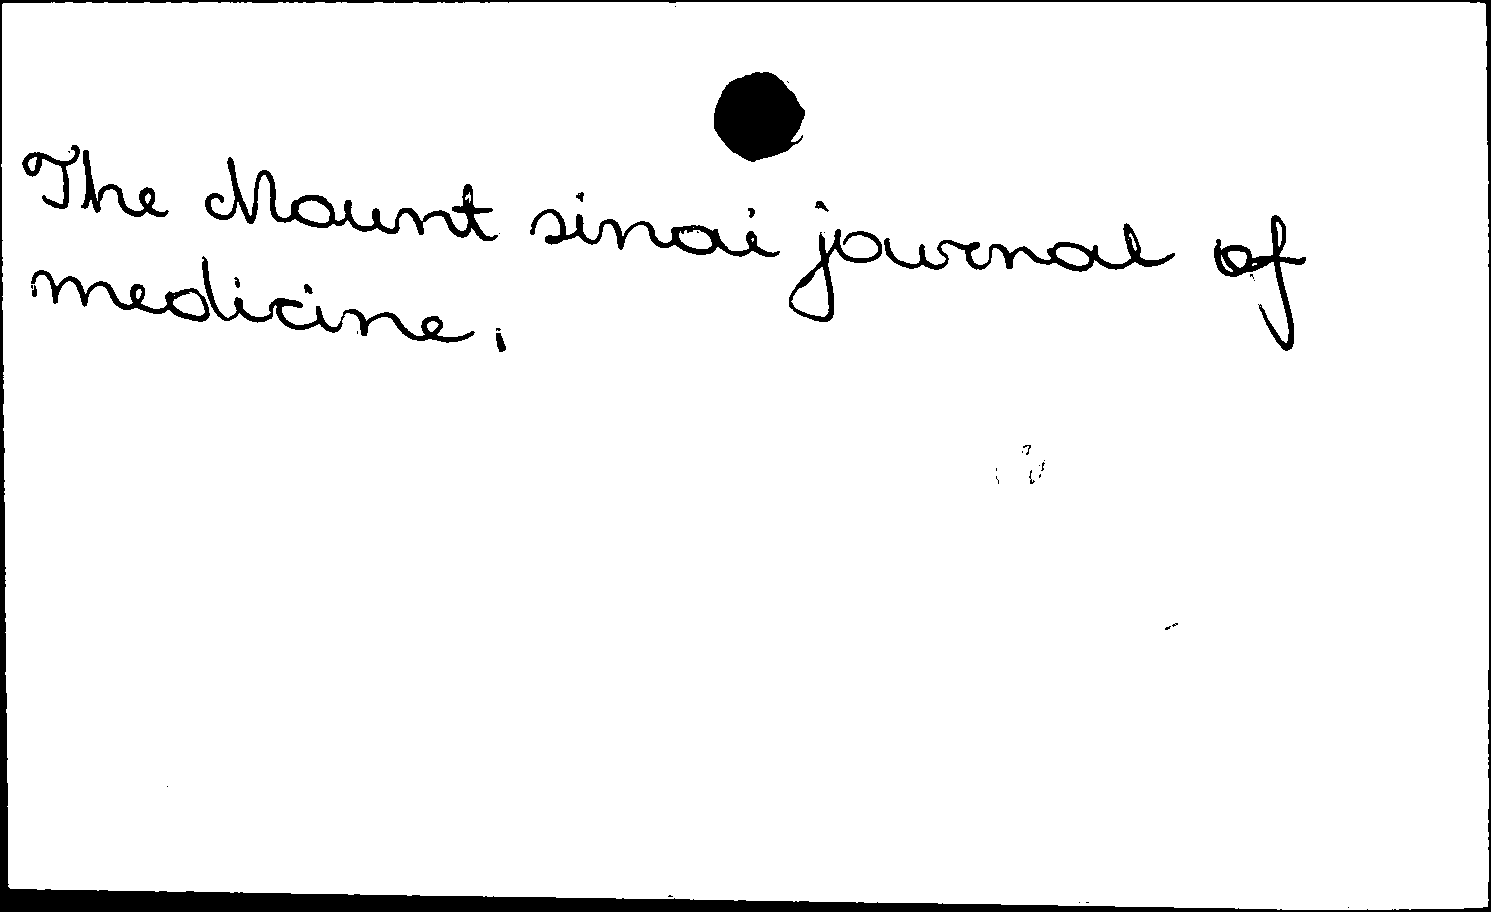 The Mount sinai journal of
medicine.